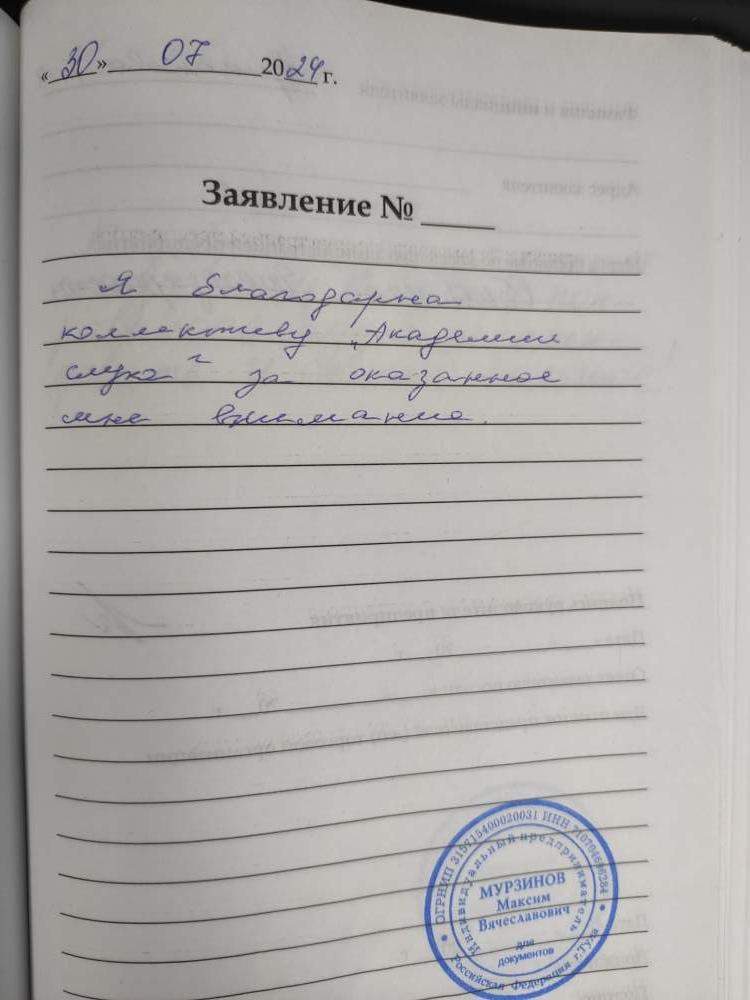 «30» 07 2024 г.
Заявление №
Я благодарна
коллективу „Академии
слуха“ за оказанное
мне внимание.
ОГРНИП 315715400020031 ИНН
Индивидуальный предприниматель
МУРЗИНОВ
Максим
Вячеславович
для
документов
Российская Федерация г.Тула